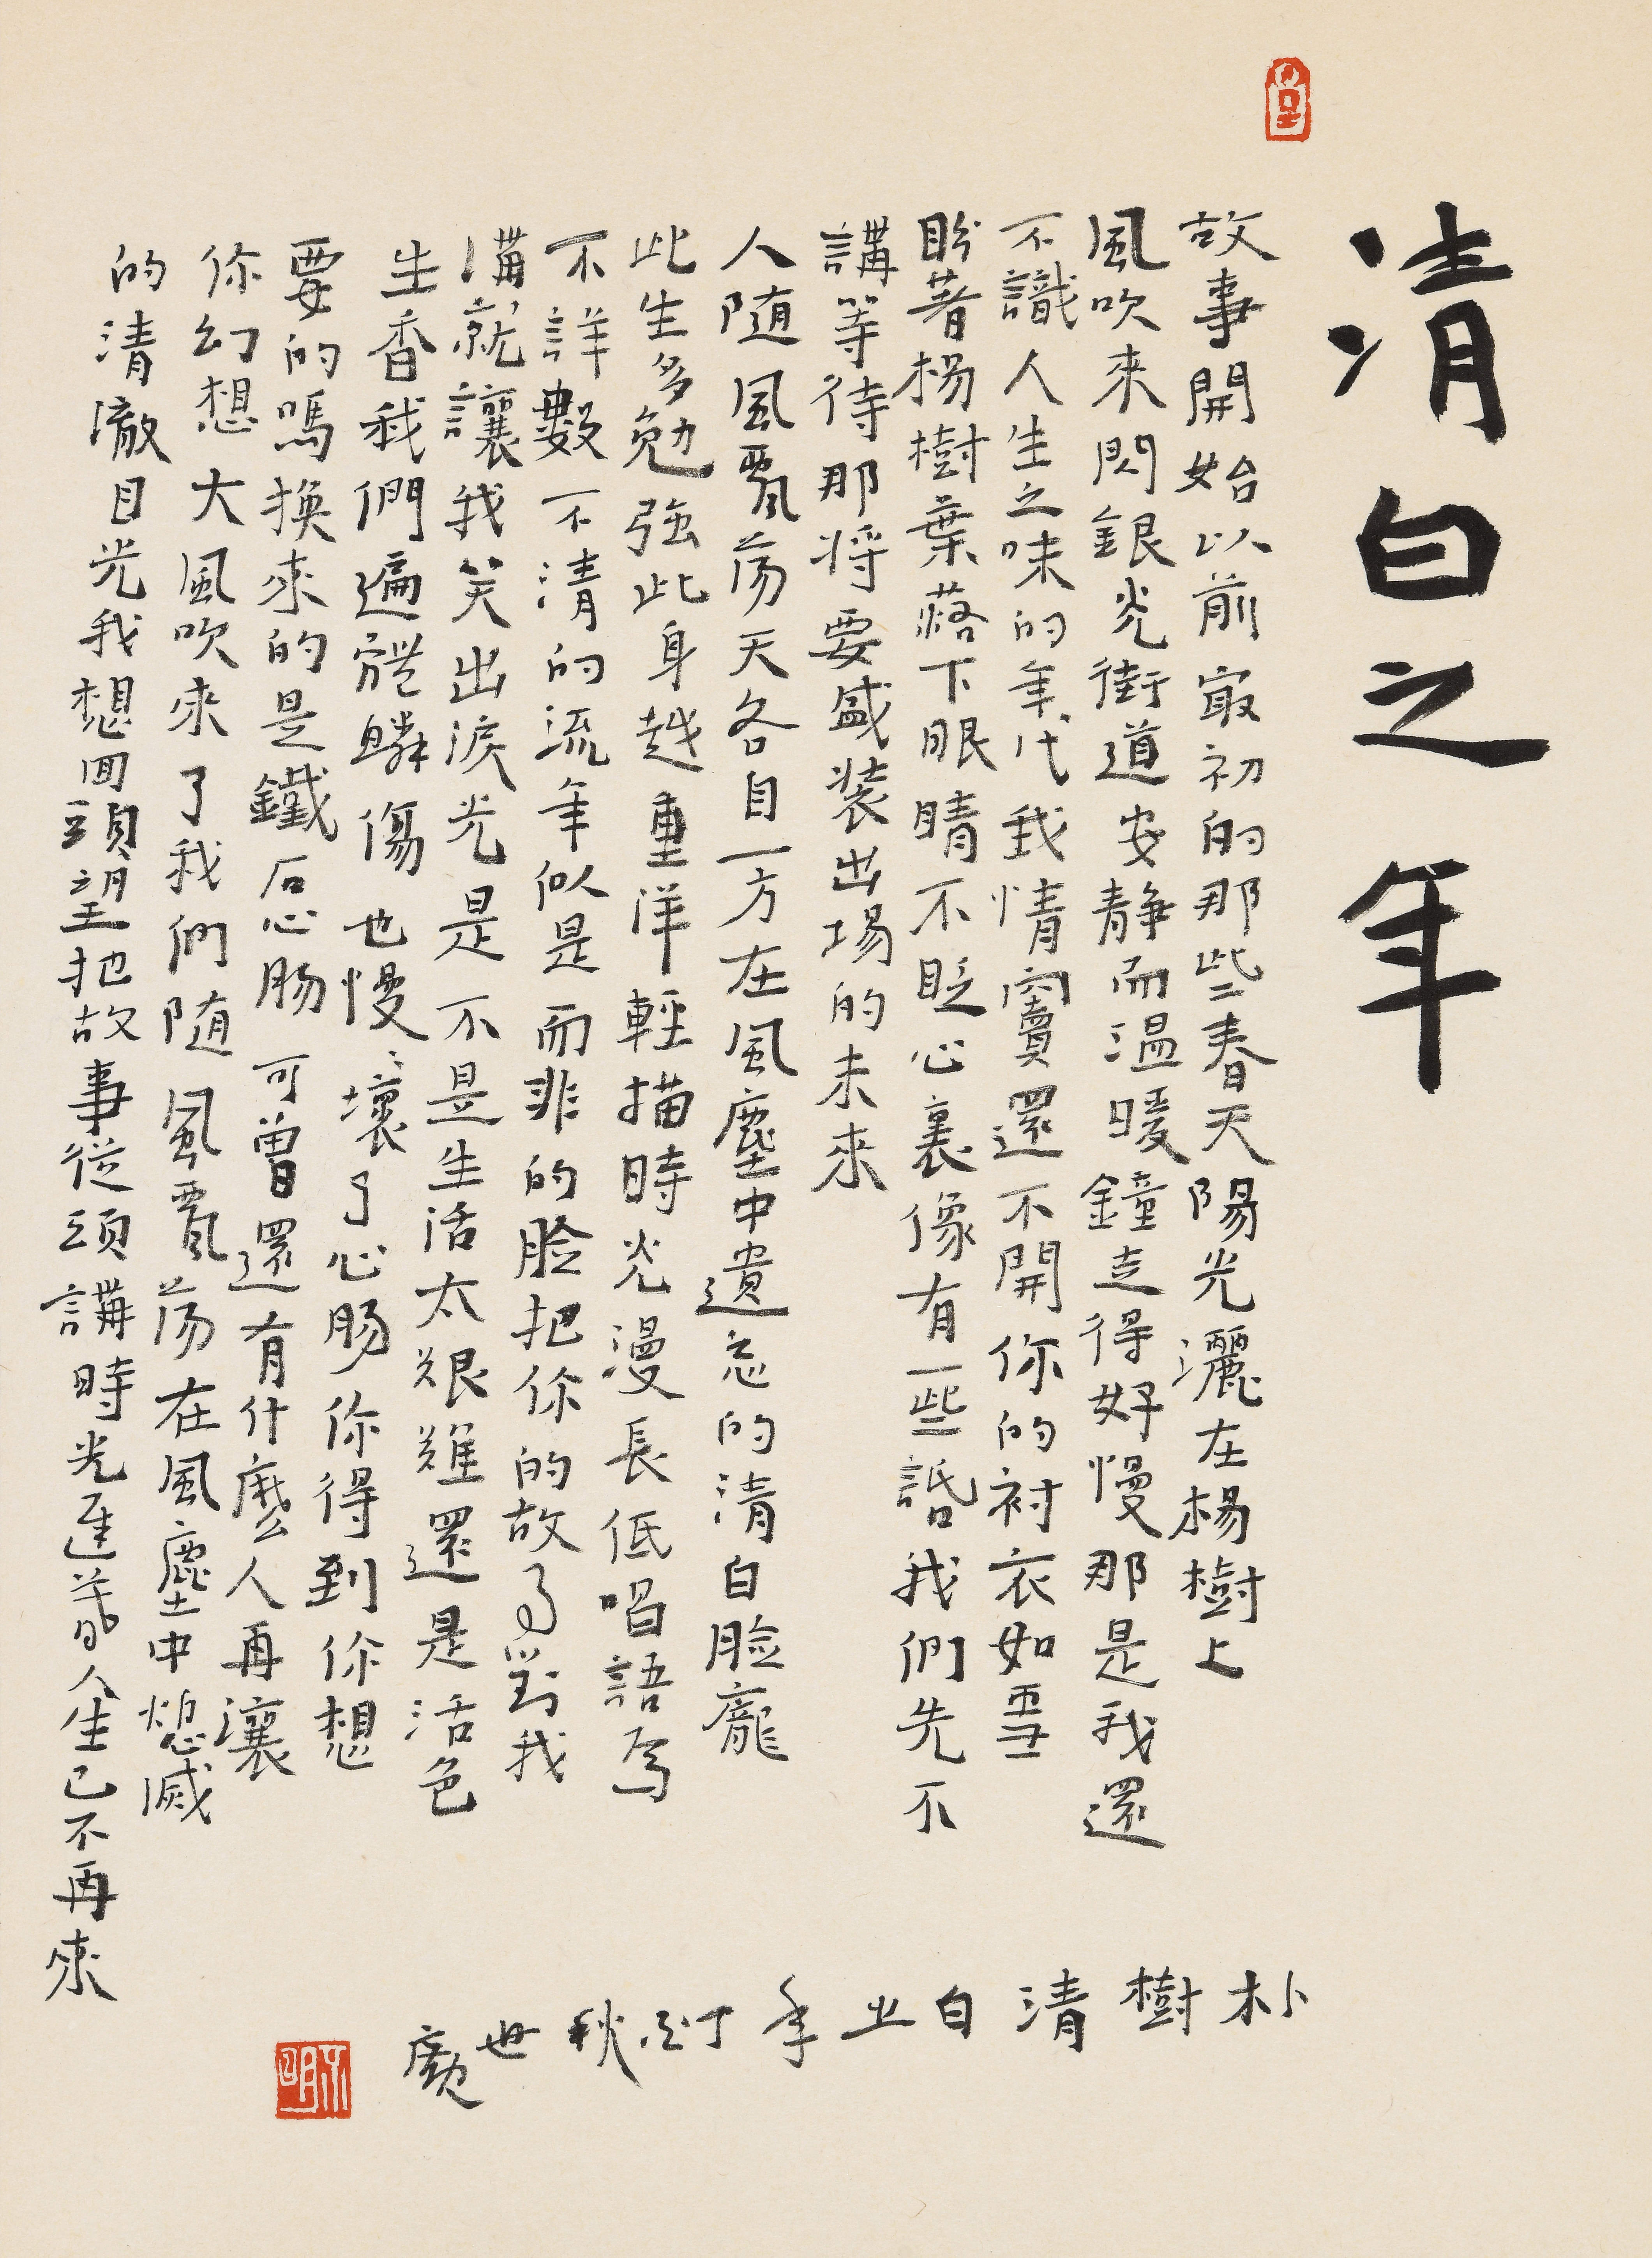 清白之年
故事開始以前最初的那些春天陽光灑在楊樹上
風吹來閃銀光街道安静而温暖鐘走得好慢那是我還
不識人生之味的年代我情竇還不開你的衬衣如雪
盼着楊樹葉落下眼睛不眨心裏像有一些話我們先不
講等待那将要盛装出場的未來
人随風飘荡天各自一方在風塵中遺忘的清白脸龐
此生多勉強此身越重洋輕描時光漫長低唱語焉
不詳數不清的流年似是而非的脸把你的故事對我
講就讓我笑出淚光是不是生活太艰难還是活色
生香我們遍體鳞傷也慢慢壞了心肠你得到你想
要的嗎换來的是鐵石心肠可曾還有什麼人再讓
你幻想大風吹來了我們随風飘荡在風塵中熄滅
的清澈目光我想回頭望把故事從頭講時光迟暮人生已不再來
朴樹清白之年丁酉秋世